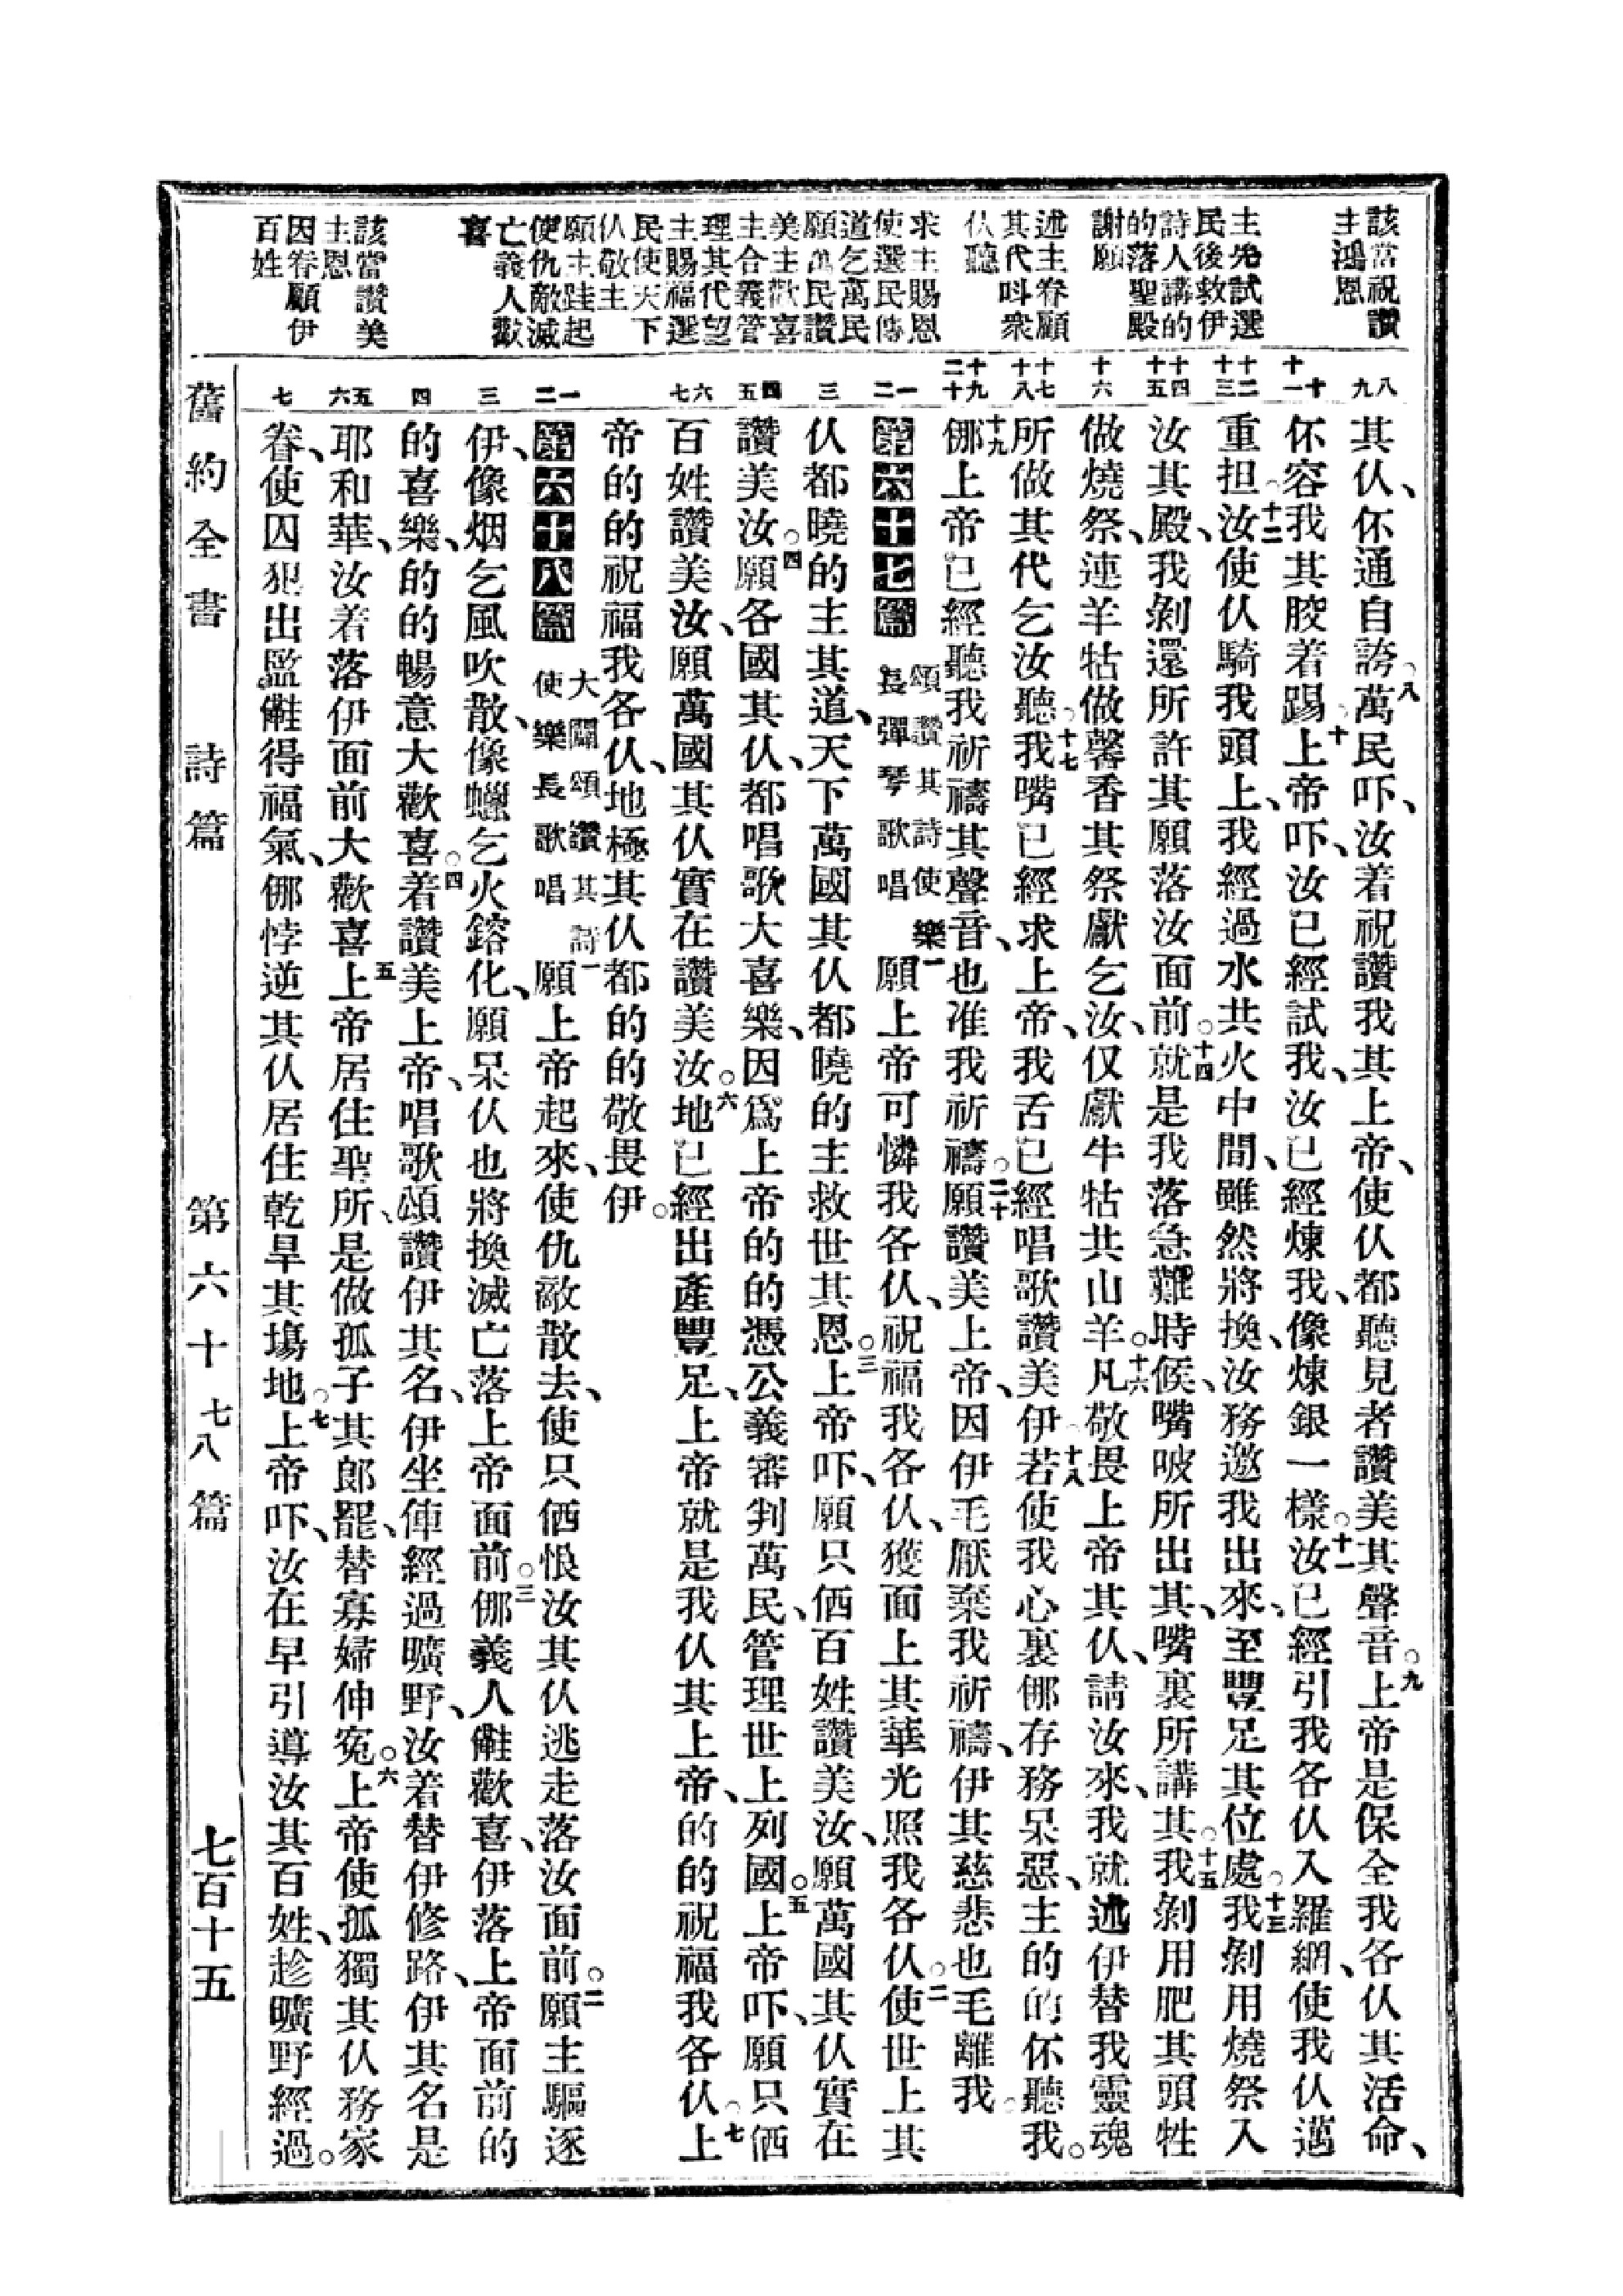 該當祝讚
主鴻恩
主先試選
民後救伊
詩人講的
的落聖殿
謝願
述主眷顧
其代呌衆
仈聽
求主賜恩
使選民傳
道乞萬民
願萬民讚
美主歡喜
主合義管
理其代望
主賜福選
民使天下
仈敬主
願主䟕起
使仇敵滅
亡義人歡
喜
該當讚美
主恩
因眷顧伊
百姓
八
九
十
十一
十二
十三
十四
十五
十六
十七
十八
十九
二十
一
二
三
四
五
六
七
一
二
三
四
五
六
七
其仈、伓通自誇。八萬民吓、汝着祝讚我其上帝、使仈都聽見者讚美其聲音。九上帝是保全我各仈其活命、
伓容我其骹着踢。十上帝吓、汝已經試我、汝已經煉我、像煉銀一樣。十一汝已經引我各仈入羅網、使我仈邁
重担。十二汝使仈騎我頭上、我經過水共火中間、雖然將換、汝務邀我出來、至豐足其位處。十三我剝用燒祭入
汝其殿、我剝還所許其願落汝面前。十四就是我落急難時候、嘴唆所出其、嘴裏所講其。十五我剝用肥其頭牲
做燒祭、連羊牯做馨香其祭獻乞汝、仅獻牛牯共山羊。十六凡敬畏上帝其仈、請汝來、我就述伊替我靈魂
所做其代乞汝聽。十七我嘴已經求上帝、我舌已經唱歌讚美伊。十八若使我心裏㑚存務呆惡、主的的伓聽我。
十九㑚上帝已經聽我祈禱其聲音、也准我祈禱。二十願讚美上帝、因伊毛厭棄我祈禱、伊其慈悲也毛離我。
第六十七篇 頌讚其詩使樂長彈琴歌唱 一願上帝可憐我各仈、祝福我各仈、獲面上其華光照我各仈。二使世上其
仈都曉的主其道、天下萬國其仈都曉的主救世其恩。三上帝吓、願只伵百姓讚美汝、願萬國其仈實在
讚美汝。四願各國其仈、都唱歌大喜樂、因爲上帝的的憑公義審判萬民、管理世上列國。五上帝吓、願只伵
百姓讚美汝、願萬國其仈實在讚美汝。六地已經出產豐足、上帝就是我仈其上帝、的的祝福我各仈。七上
帝的的祝福我各仈、地極其仈都的的敬畏伊。
第六十八篇 大闢頌讚其詩使樂長歌唱 一願上帝起來、使仇敵散去、使只伵恨汝其仈逃走落汝面前。二願主驅逐
伊、像烟乞風吹散、像蠟乞火鎔化、願呆仈也將換滅亡落上帝面前。三㑚義人㒕歡喜、伊落上帝面前的
的喜樂、的的暢意大歡喜。四着讚美上帝、唱歌頌讚伊其名、伊坐俥經過曠野、汝着替伊修路、伊其名是
耶和華、汝着落伊面前大歡喜。五上帝居住聖所、是做孤子其郎罷、替寡婦伸寃。六上帝使孤獨其仈務家
眷、使囚犯出監㒕得福氣、㑚悖逆其仈居住乾旱其塲地。七上帝吓、汝在早引導汝其百姓、趁曠野經過。
舊約全書 詩篇 第六十七八篇 七百十五